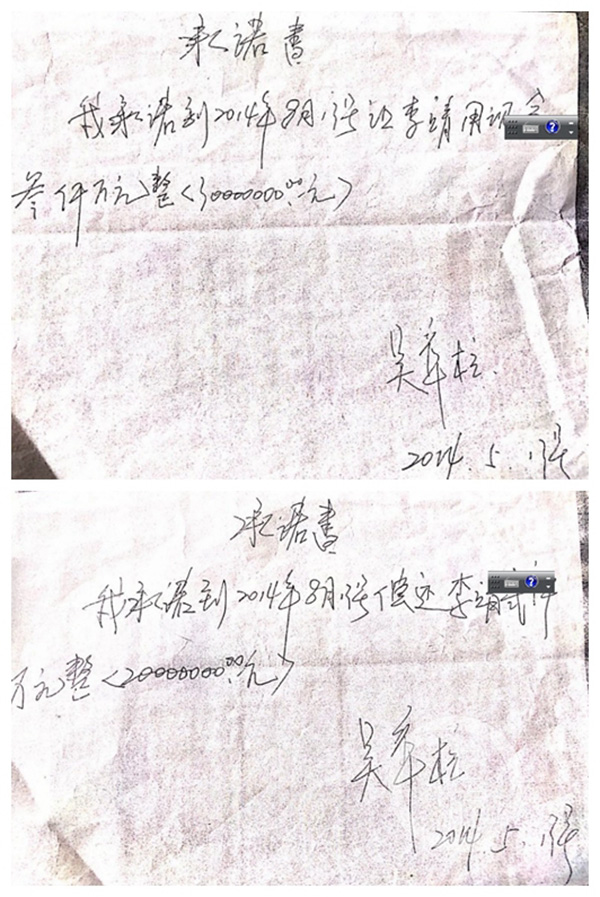 承诺书
我承诺到2014年8月1号让李靖用现金
叁仟万元整<30000000.00元>
吴柱
2014.5.1号
承诺书
我承诺到2014年8月1号偿还李靖贰仟
万元整<20000000.00元>
吴柱
2014.5.1号